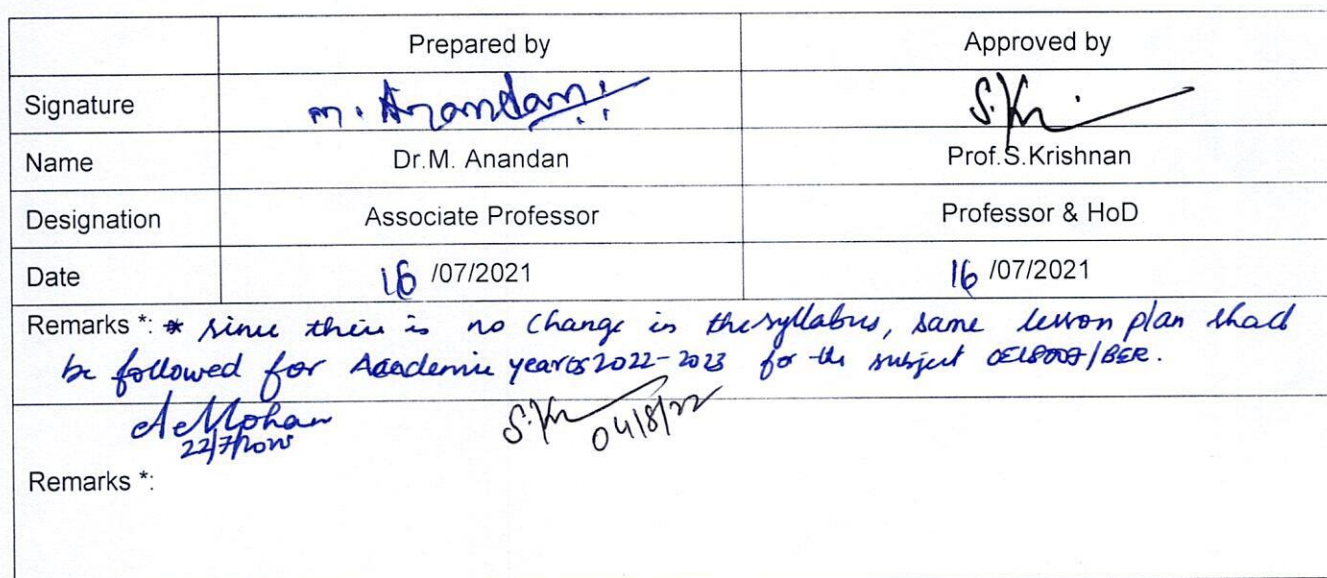 Prepared by Approved by
Signature m. Anandan S.Kri
Name Dr.M. Anandan Prof.S.Krishnan
Designation Associate Professor Professor & HoD
Date 16 /07/2021 16 /07/2021
Remarks *: * since there is no change in the syllabus, same lesson plan shall
be followed for Academic years 2022-2023 for the subject /BER.
A Mohan S.Kr 04/8/22
Remarks *: